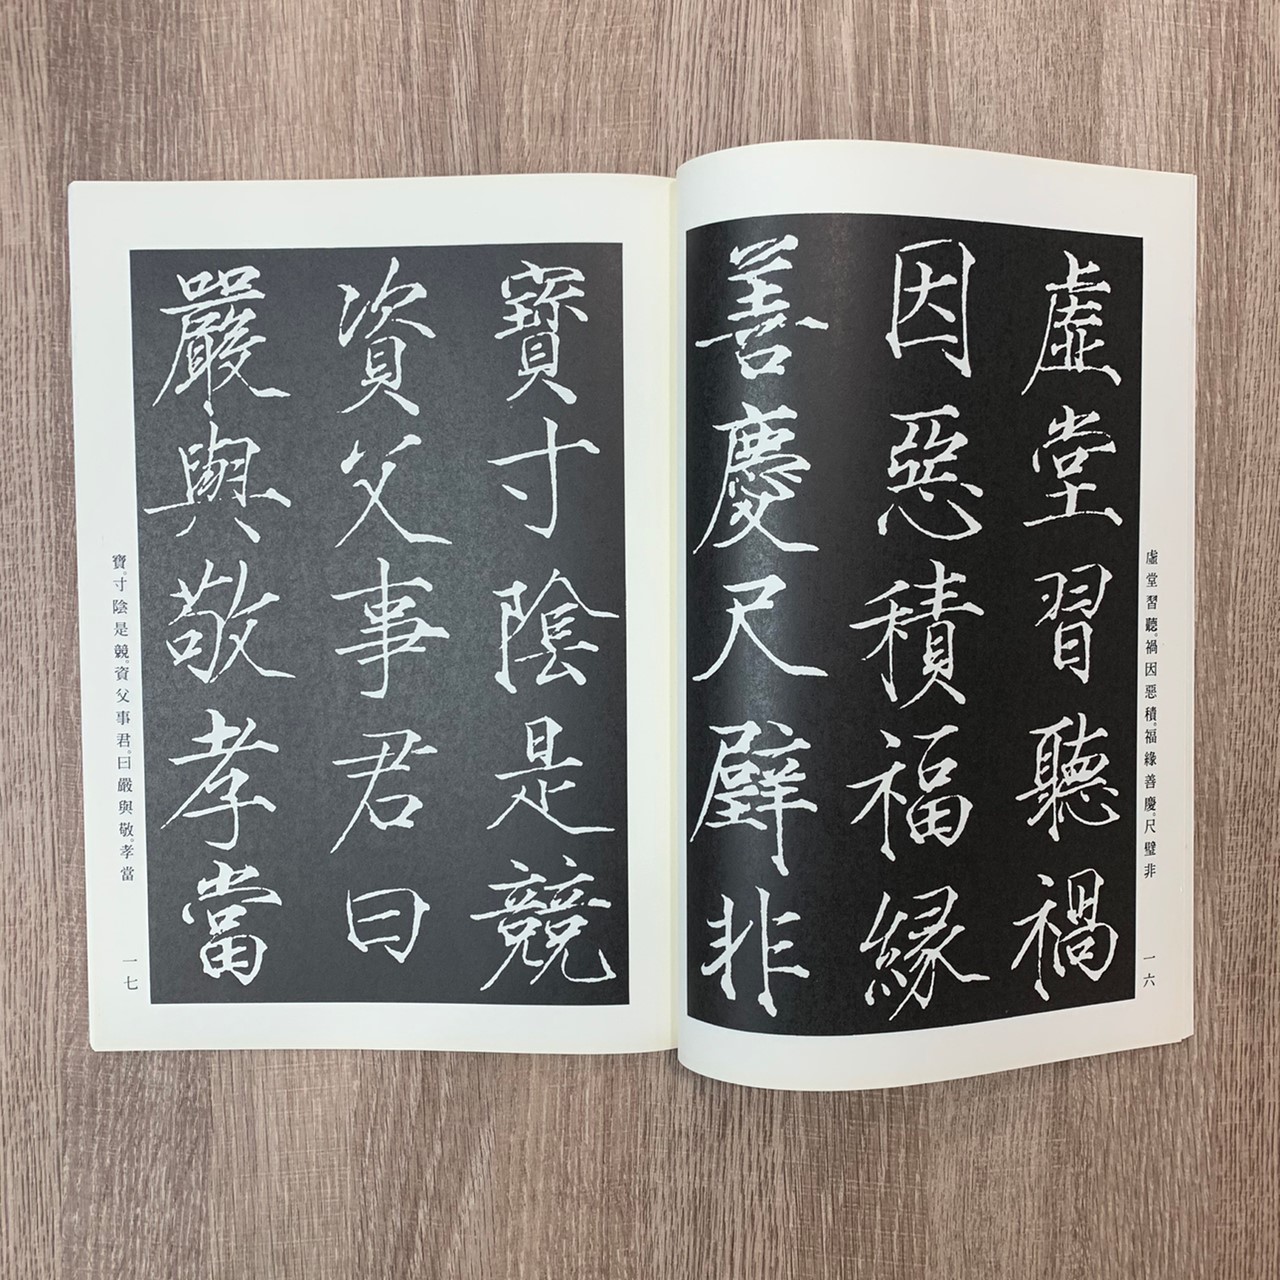 虛堂習聽禍
因惡積福緣
善慶尺璧非
虛堂習聽。禍因惡積。福緣善慶。尺璧非
一六
寶寸陰是競
資父事君曰
嚴與敬孝當
寶。寸陰是競。資父事君。曰嚴與敬。孝當
一七